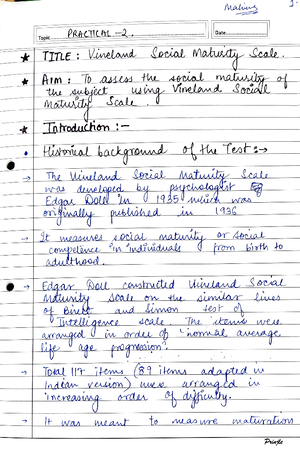 Making
Topic PRACTICAL-2. Date
★ TITLE: Vineland Social Maturity Scale.
★ Aim: To assess the social maturity of
the subject using Vineland Social
Maturity Scale.
★ Introduction:-
• Historical background of the Test:→
→ The Vineland Social Maturity Scale
was developed by psychologist
Edgar Doll in 1935 which was
originally published in 1936
→ It measures social maturity or social
competence in individuals from birth to
adulthood.
→ Edgar Doll constructed Vineland Social
Maturity Scale on the similar lines
of Binet and Simon test of
Intelligence scale. The items were
arranged in order of "normal average
life age progression".
→ Total 117 items (89 items adapted in
Indian version) were arranged in
increasing order of difficulty.
→ It was meant to measure maturations
Pringle